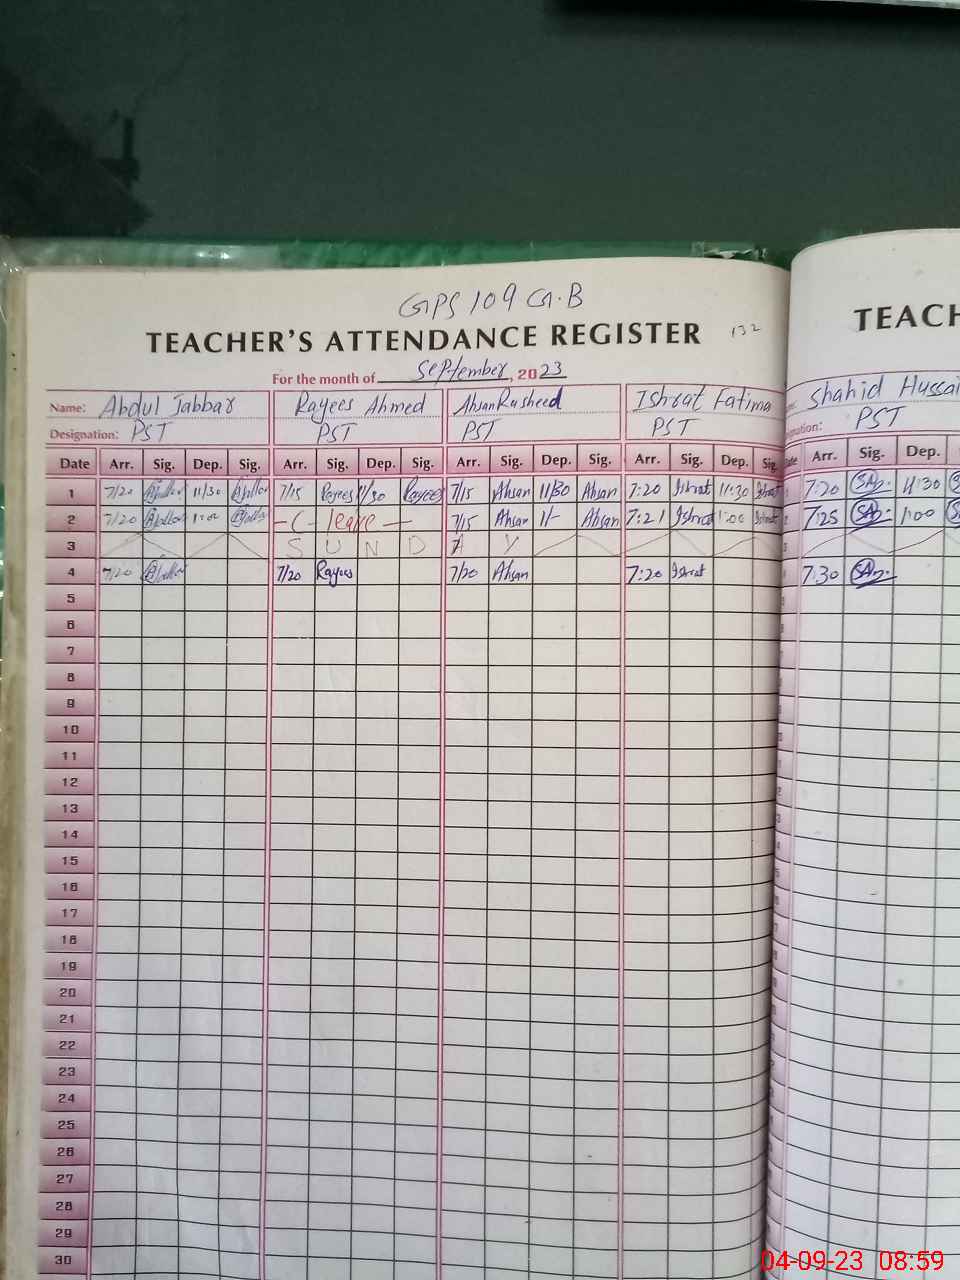 GPS 109 G.B
TEACHER'S ATTENDANCE REGISTER 132
TEACH
For the month of September, 2023
Name: Abdul Jabbar Rayees Ahmed Ahsan Rasheed Ishrat Fatima Shahid Hussai
Designation: PST PST PST PST PST
Date Arr. Sig. Dep. Sig. Arr. Sig. Dep. Sig. Arr. Sig. Dep. Sig. Arr. Sig. Dep. Sig. Date Arr. Sig. Dep.
1 7/20 11/30 7/15 Rayees 11/30 Rayees 7/15 Ahsan 11/30 Ahsan 7:20 Ishrat 11:30 Ishrat 1 7:20 SA 11:30
2 7/20 1:00 -C- leave - 7/15 Ahsan 11/- Ahsan 7:21 Ishrat 1:00 Ishrat 2 7:25 SA 1:00
3 S U N D A Y 3
4 7/20 7/20 Rayees 7/20 Ahsan 7:20 Ishrat 7:30 SA
5
6
7
8
9
10
11
12
13
14
15
16
17
18
19
20
21
22
23
24
25
26
27
28
29
30
04-09-23 08:59